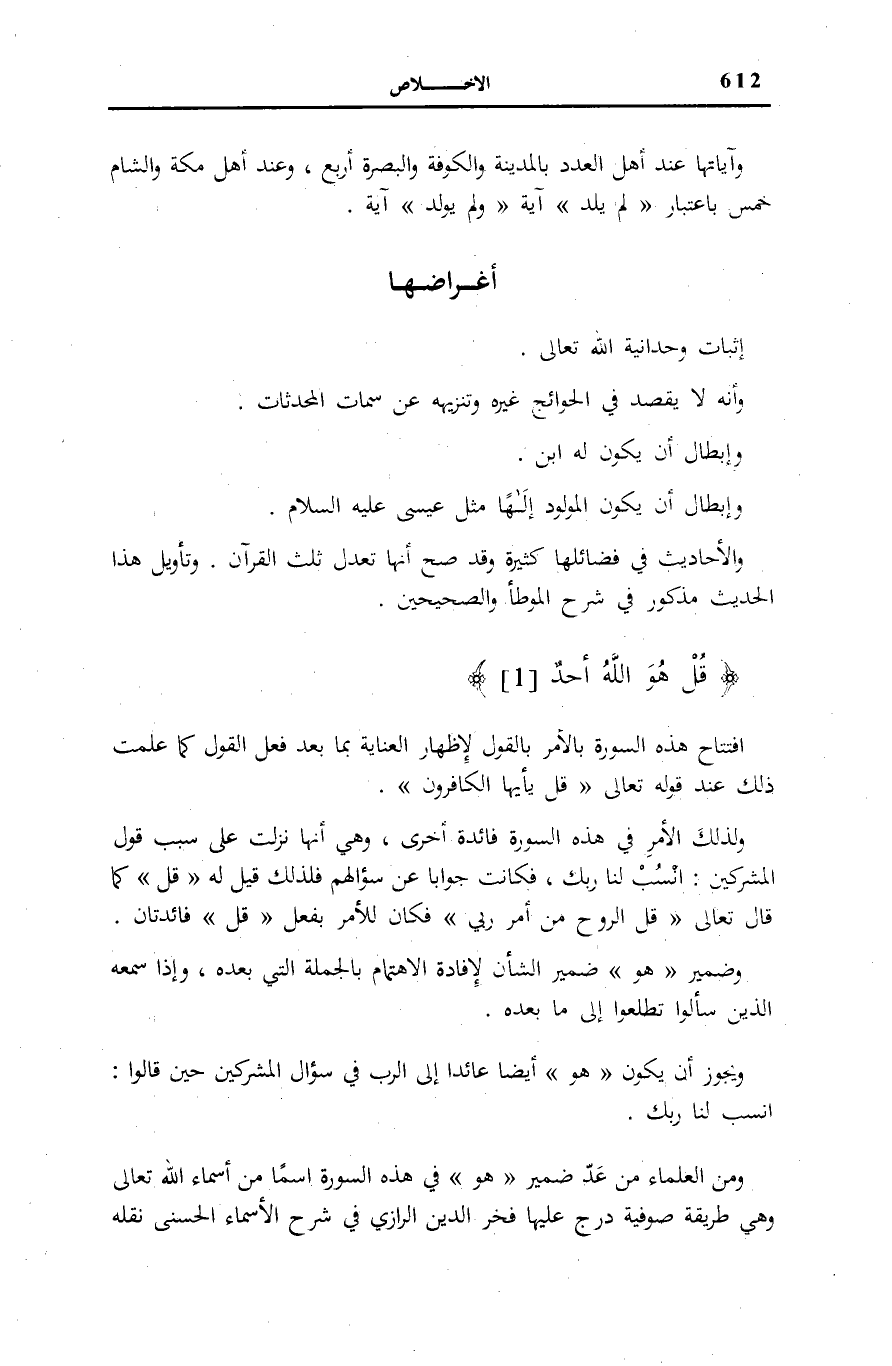 612 الاخـــــلاص
وآياتها عند أهل العدد بالمدينة والكوفة والبصرة أربع ، وعند أهل مكة والشام
خمس باعتبار « لم يلد » آية « ولم يولد » آية .
أغـراضـهـا
إثبات وحدانية الله تعالى .
وأنه لا يقصد في الحوائج غيره وتنزيهه عن سمات المحدثات .
وإبطال أن يكون له ابن .
وإبطال أن يكون المولود إلَـٰهًا مثل عيسى عليه السلام .
والأحاديث في فضائلها كثيرة وقد صح أنها تعدل ثلث القرآن . وتأويل هذا
الحديث مذكور في شرح الموطأ والصحيحين .
﴿ قُلْ هُوَ اللَّهُ أحدٌ [1] ﴾
افتتاح هذه السورة بالأمر بالقول لإظهار العناية بما بعد فعل القول كما علمت
ذلك عند قوله تعالى « قل يأيها الكافرون » .
ولذلكَ الأمرِ في هذه السورة فائدة أخرى ، وهي أنها نزلت على سبب قول
المشركين : انْسُبْ لنا ربك ، فكانت جوابا عن سؤالهم فلذلك قيل له « قل » كما
قال تعالى « قل الروح من أمر ربي » فكان للأمر بفعل « قل » فائدتان .
وضمير « هو » ضمير الشأن لإفادة الاهتمام بالجملة التي بعده ، وإذا سمعه
الذين سألوا تطلعوا إلى ما بعده .
ويجوز أن يكون « هو » أيضا عائدا إلى الرب في سؤال المشركين حين قالوا :
انسب لنا ربك .
ومن العلماء من عَدّ ضمير « هو » في هذه السورة اسمًا من أسماء الله تعالى
وهي طريقة صوفية درج عليها فخر الدين الرازي في شرح الأسماء الحسنى نقله